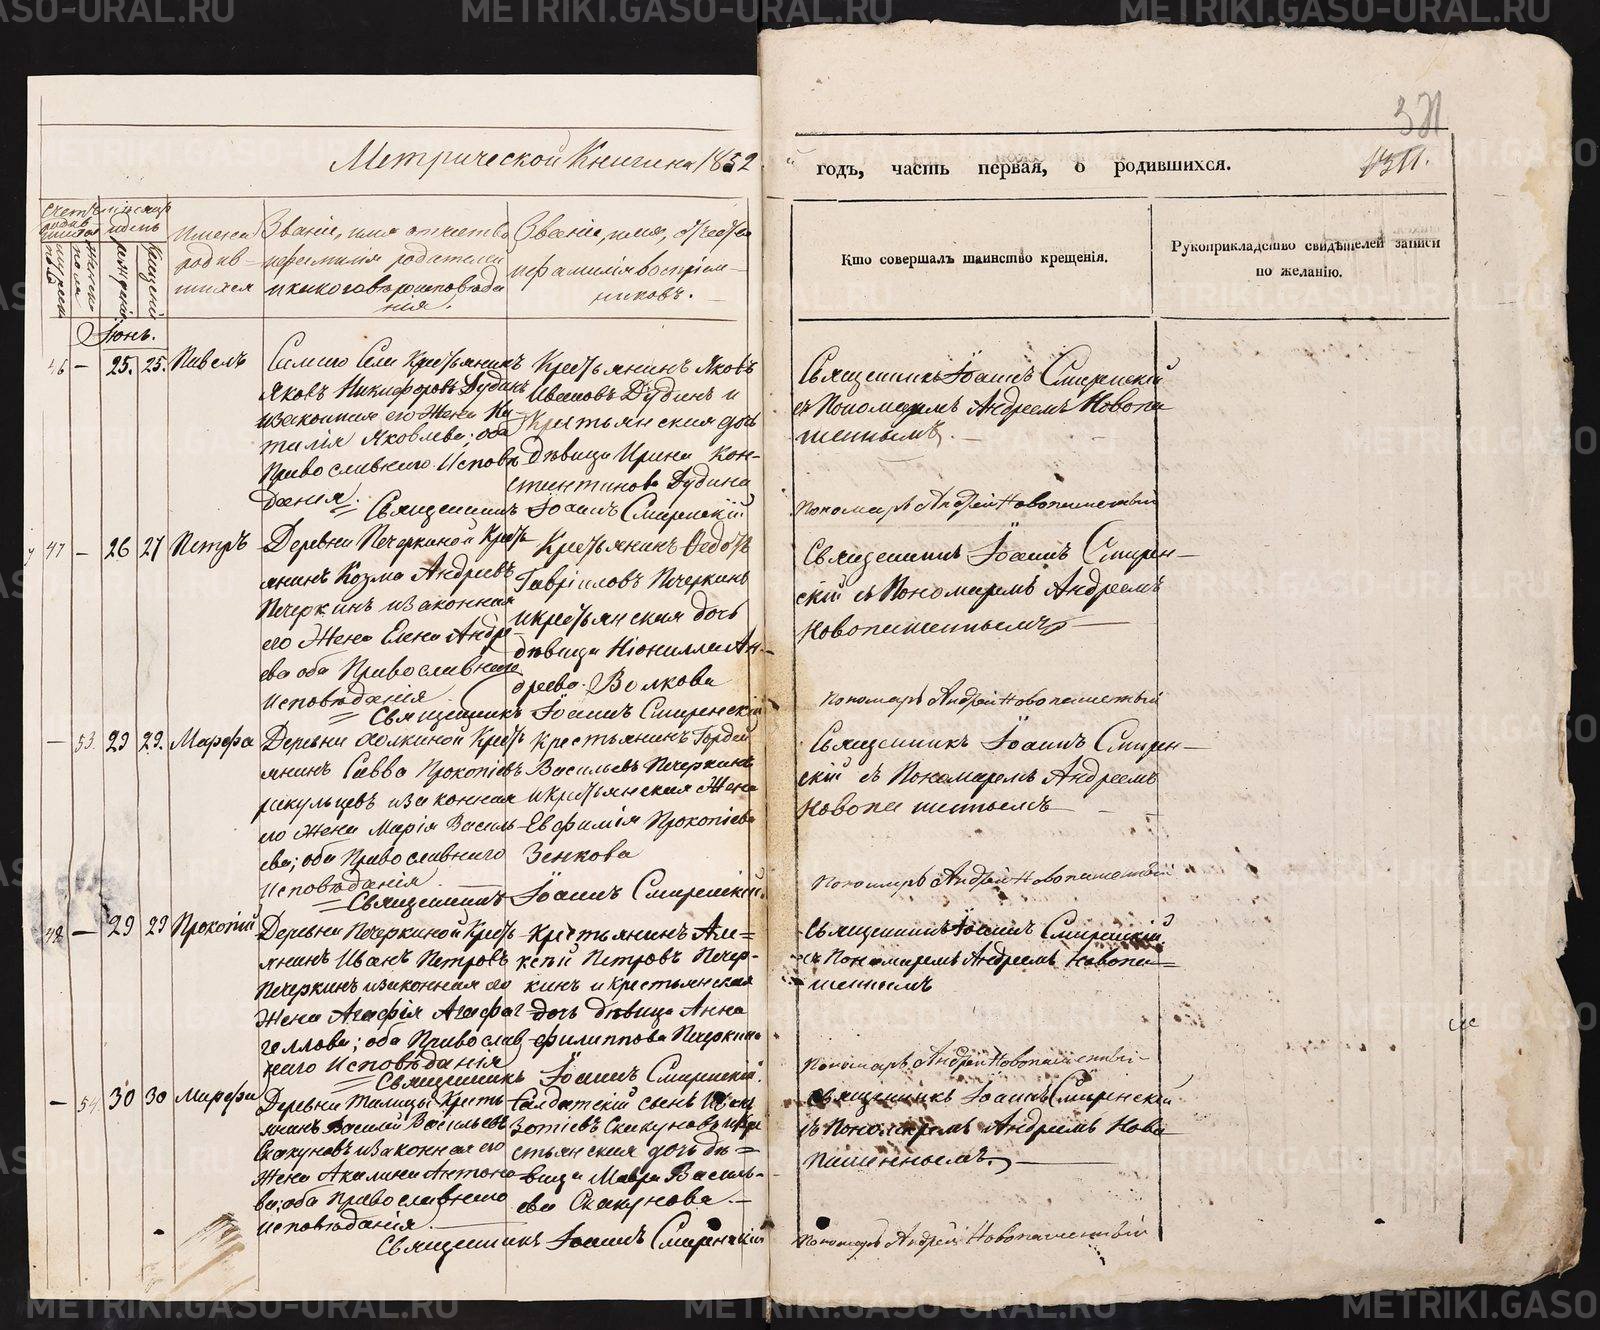 371
Метрической Книги на 1852
годъ, часть первая, о родившихся.
Имена
родив-
шихся
Званіе, имя отчество
и фамилія родителей
и какого вѣроисповѣда
нія.
Званіе, имя, отчество
и фамилія воспріем-
никовъ.
Кто совершалъ таинство крещенія.
Рукоприкладство свидѣтелей записи
по желанію.
Іюнь.
46 — 25. 25. Павелъ
Самаго Села Крестьянинъ
Яковъ Никифоровъ Дудинъ
и законная его Жена На-
талія Яковлева; оба
Православнаго Исповѣ
данія.
Крестьянинъ Яковъ
Ивановъ Дудинъ и
Крестьянская дочь
дѣвица Ирина Кон-
стантинова Дудина
Священникъ Іоаннъ Смиренскій
Священникъ Іоаннъ Смиренскій
съ Пономаремъ Андреемъ Новопа
шеннымъ. —
Пономарь Андрей Новопашенный
47 — 26 27 Петръ
Деревни Печеркиной Кресть
янинъ Козма Андреевъ
Печеркинъ и законная
его Жена Елена Андре-
ева оба Православнаго
Исповѣданія
Крестьянинъ Ѳедотъ
Гавріиловъ Печеркинъ
и крестьянская дочь
дѣвицаНіонилла Ан-
дреева Волкова
Священникъ Іоаннъ Смиренскій
Священникъ Іоаннъ Смирен-
скій съ Пономаремъ Андреемъ
Новопашеннымъ —
Пономарь Андрей Новопашенный
— 53. 29 29. Марѳа
Деревни Кресть
янинъ Савва Прокопіевъ
и законная
его Жена Марія Василь
ева; оба Православнаго
Исповѣданія
Крестьянинъ Гордей
Васильевъ Печеркинъ
и крестьянская Жена
Евфимія Прокопіева
Зенкова
Священникъ Іоаннъ Смиренскій
Священникъ Іоаннъ Смирен-
скій съ Пономаремъ Андреемъ
Новопашеннымъ
Пономарь Андрей Новопашенный
48 — 29 29 Прокопій
Деревни Печеркиной Кресть
янинъ Иванъ Петровъ
Печеркинъ и законная его
Жена Агафія Агафаг
гелова; оба Православ
наго Исповѣданія
Крестьянинъ Але=
ксій Петровъ Печер-
кинъ и Крестьянская
дочь дѣвица Анна
Филиппова Печеркина
Священникъ Іоаннъ Смиренскій.
Священникъ Іоаннъ Смиренскій
съ Пономаремъ Андреемъ Новопа=
шеннымъ
Пономарь Андрей Новопашенный
— 54 30 30 Марѳа
Деревни Талицы Кресть
янинъ Василій Васильевъ
Скакуновъ и законная его
Жена Акилина Антоно
ва; оба Православнаго
Исповѣданія.
Солдатскій сынъ
Зотіевъ Скакуновъ и Кре
стьянская дочь дѣ=
вица Мавра Василь-
ева Скакунова. —
Священникъ Іоаннъ Смиренскій
Священникъ Іоаннъ Смиренскій
съ Пономаремъ Андреемъ Ново
пашеннымъ. —
Пономарь Андрей Новопашенный
METRIKI.GASO-URAL.RU